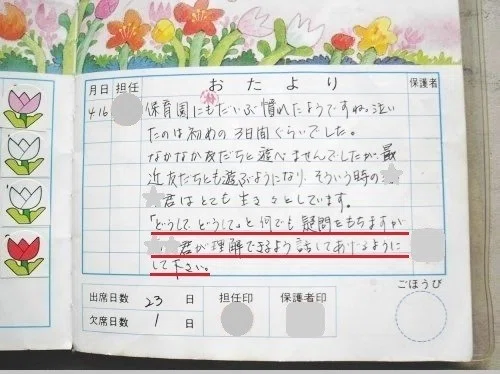 おたより
月日 担任 保護者
4/16 保育園にもだいぶ慣れたようですね。泣い
たのは初めの3日間ぐらいでした。
なかなか友だちと遊べませんでしたが、最
近友だちとも遊ぶようになり、そういう時の
君はとても生き々としています。
「どうして、どうして」と何でも疑問をもちますが
君が理解できるよう話してあげるように
して下さい。
ごほうび
出席日数 23 日 担任印 保護者印
欠席日数 1 日